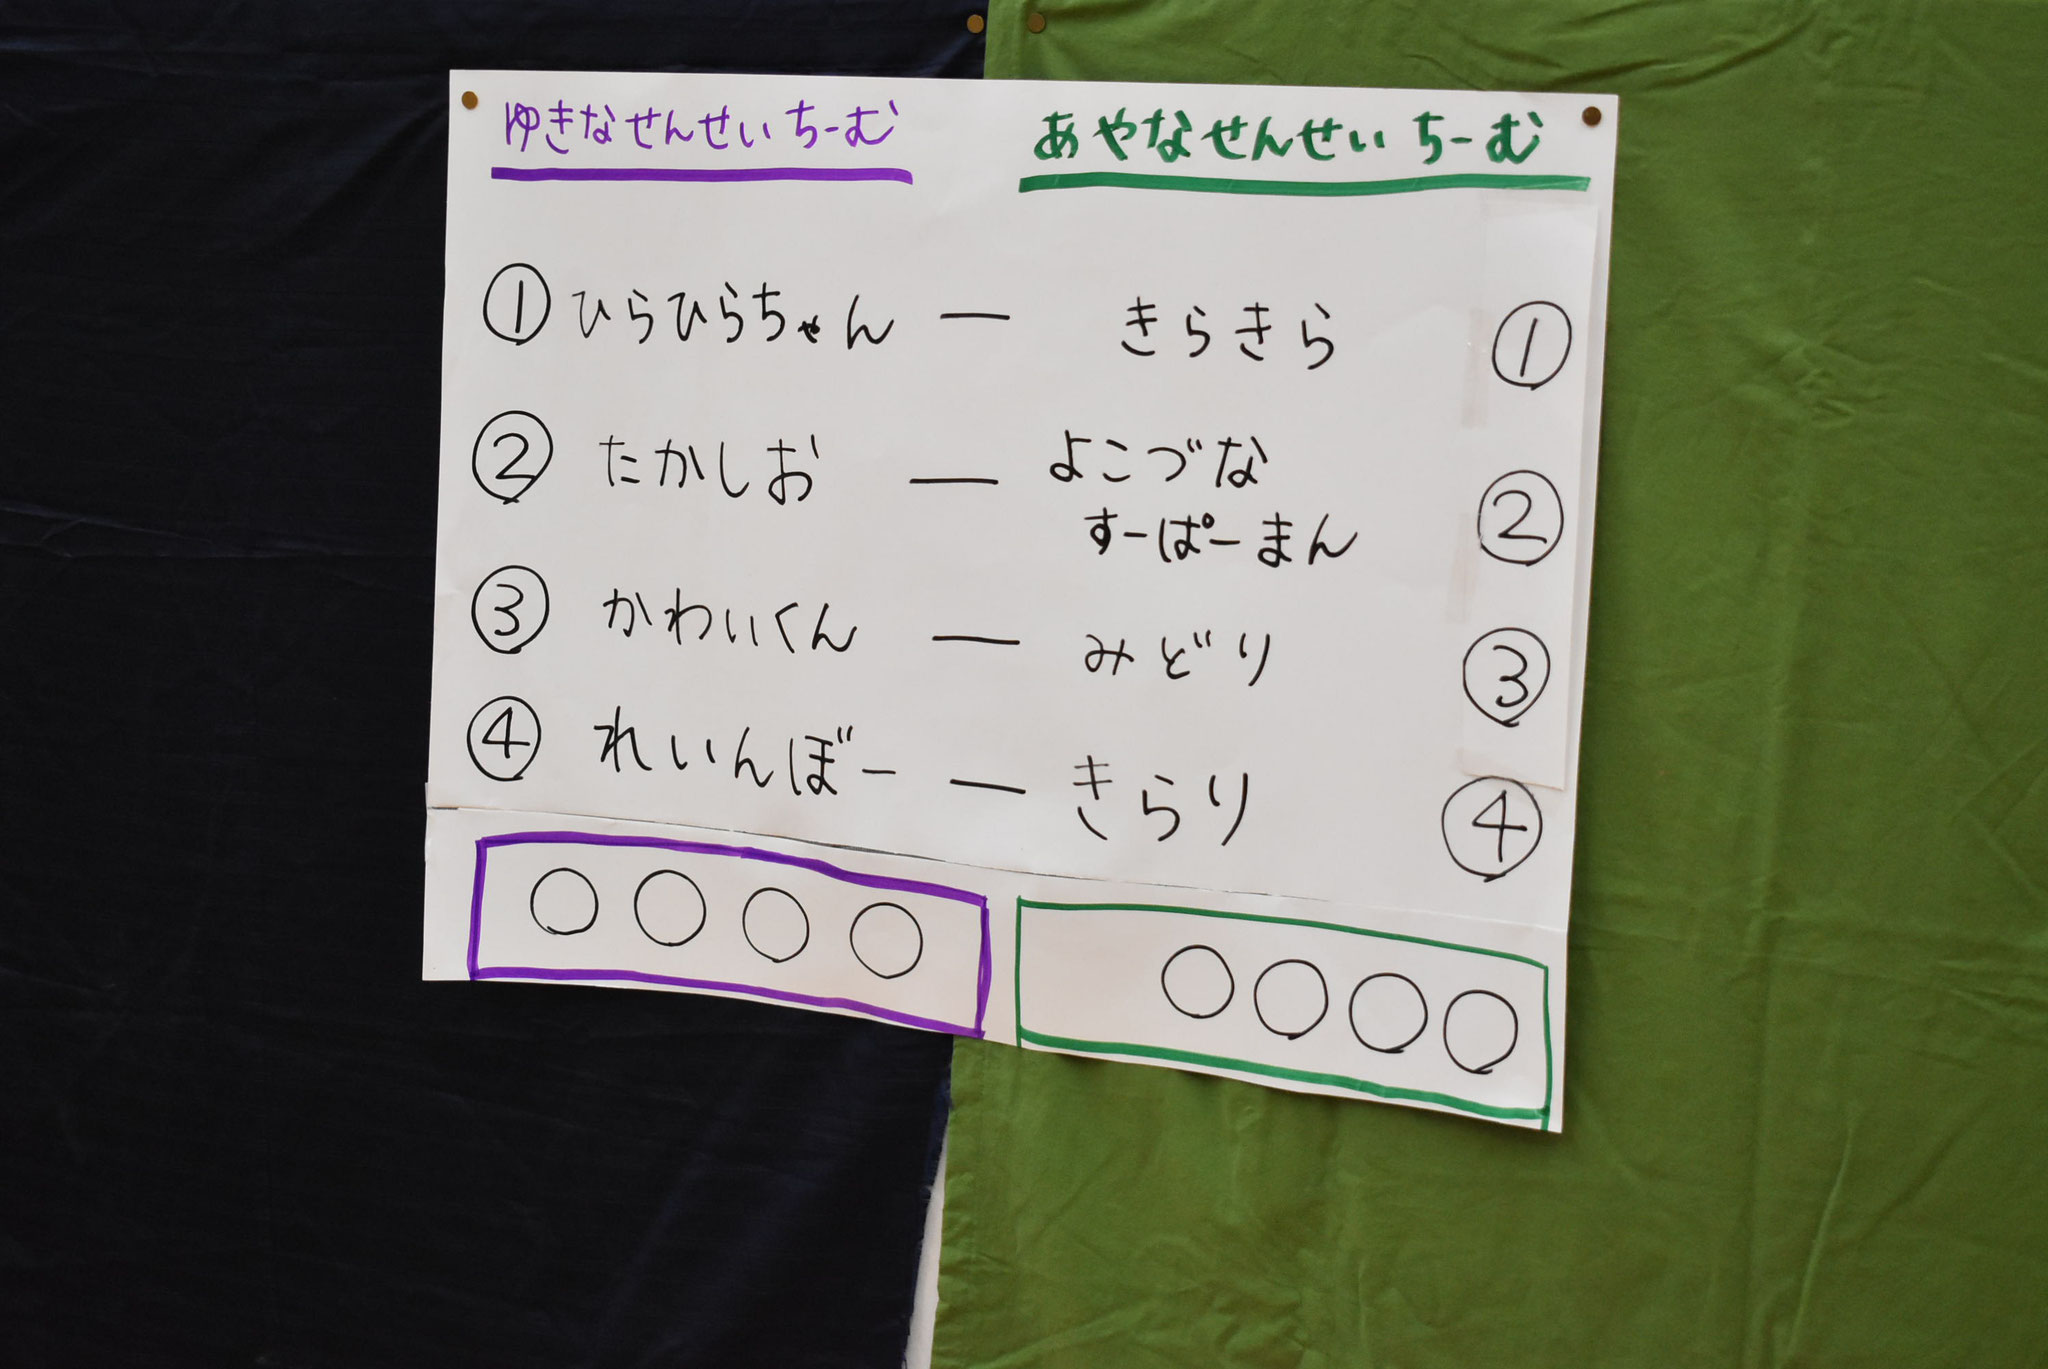 ゆきなせんせいちーむ あやなせんせいちーむ
① ひらひらちゃん ー きらきら ①
② たかしお ー よこづな ②
すーぱーまん
③ かわいくん ー みどり ③
④ れいんぼー ー きらり ④